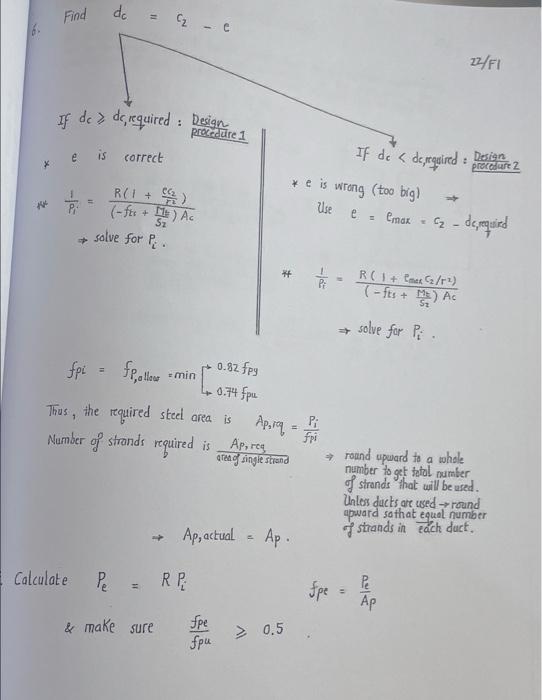 6. Find dc = c2 - e
22/F1
If dc ⩾ dc,required : Design procedure 1
* e is correct
** 1/Pi = R(1 + ec2/r²) / (-fts + Mt/S2) Ac
⇒ solve for Pi.
If dc < dc,required : Design procedure 2
* e is wrong (too big) ⇒
Use e = emax = c2 - dc,required
** 1/Pi = R(1 + emax c2/r²) / (-fts + Mt/S2) Ac
⇒ solve for Pi.
fpi = fp,allow = min → 0.82 fpy
→ 0.74 fpu
Thus, the required steel area is Ap,rq = Pi/fpi
Number of strands required is Ap,req / area of single strand
⇒ round upward to a whole
number to get total number
of strands that will be used.
Unless ducts are used → round
upward so that equal number
of strands in each duct.
→ Ap,actual = Ap.
Calculate Pe = R Pi
fpe = Pe/Ap
& make sure fpe/fpu ⩾ 0.5.